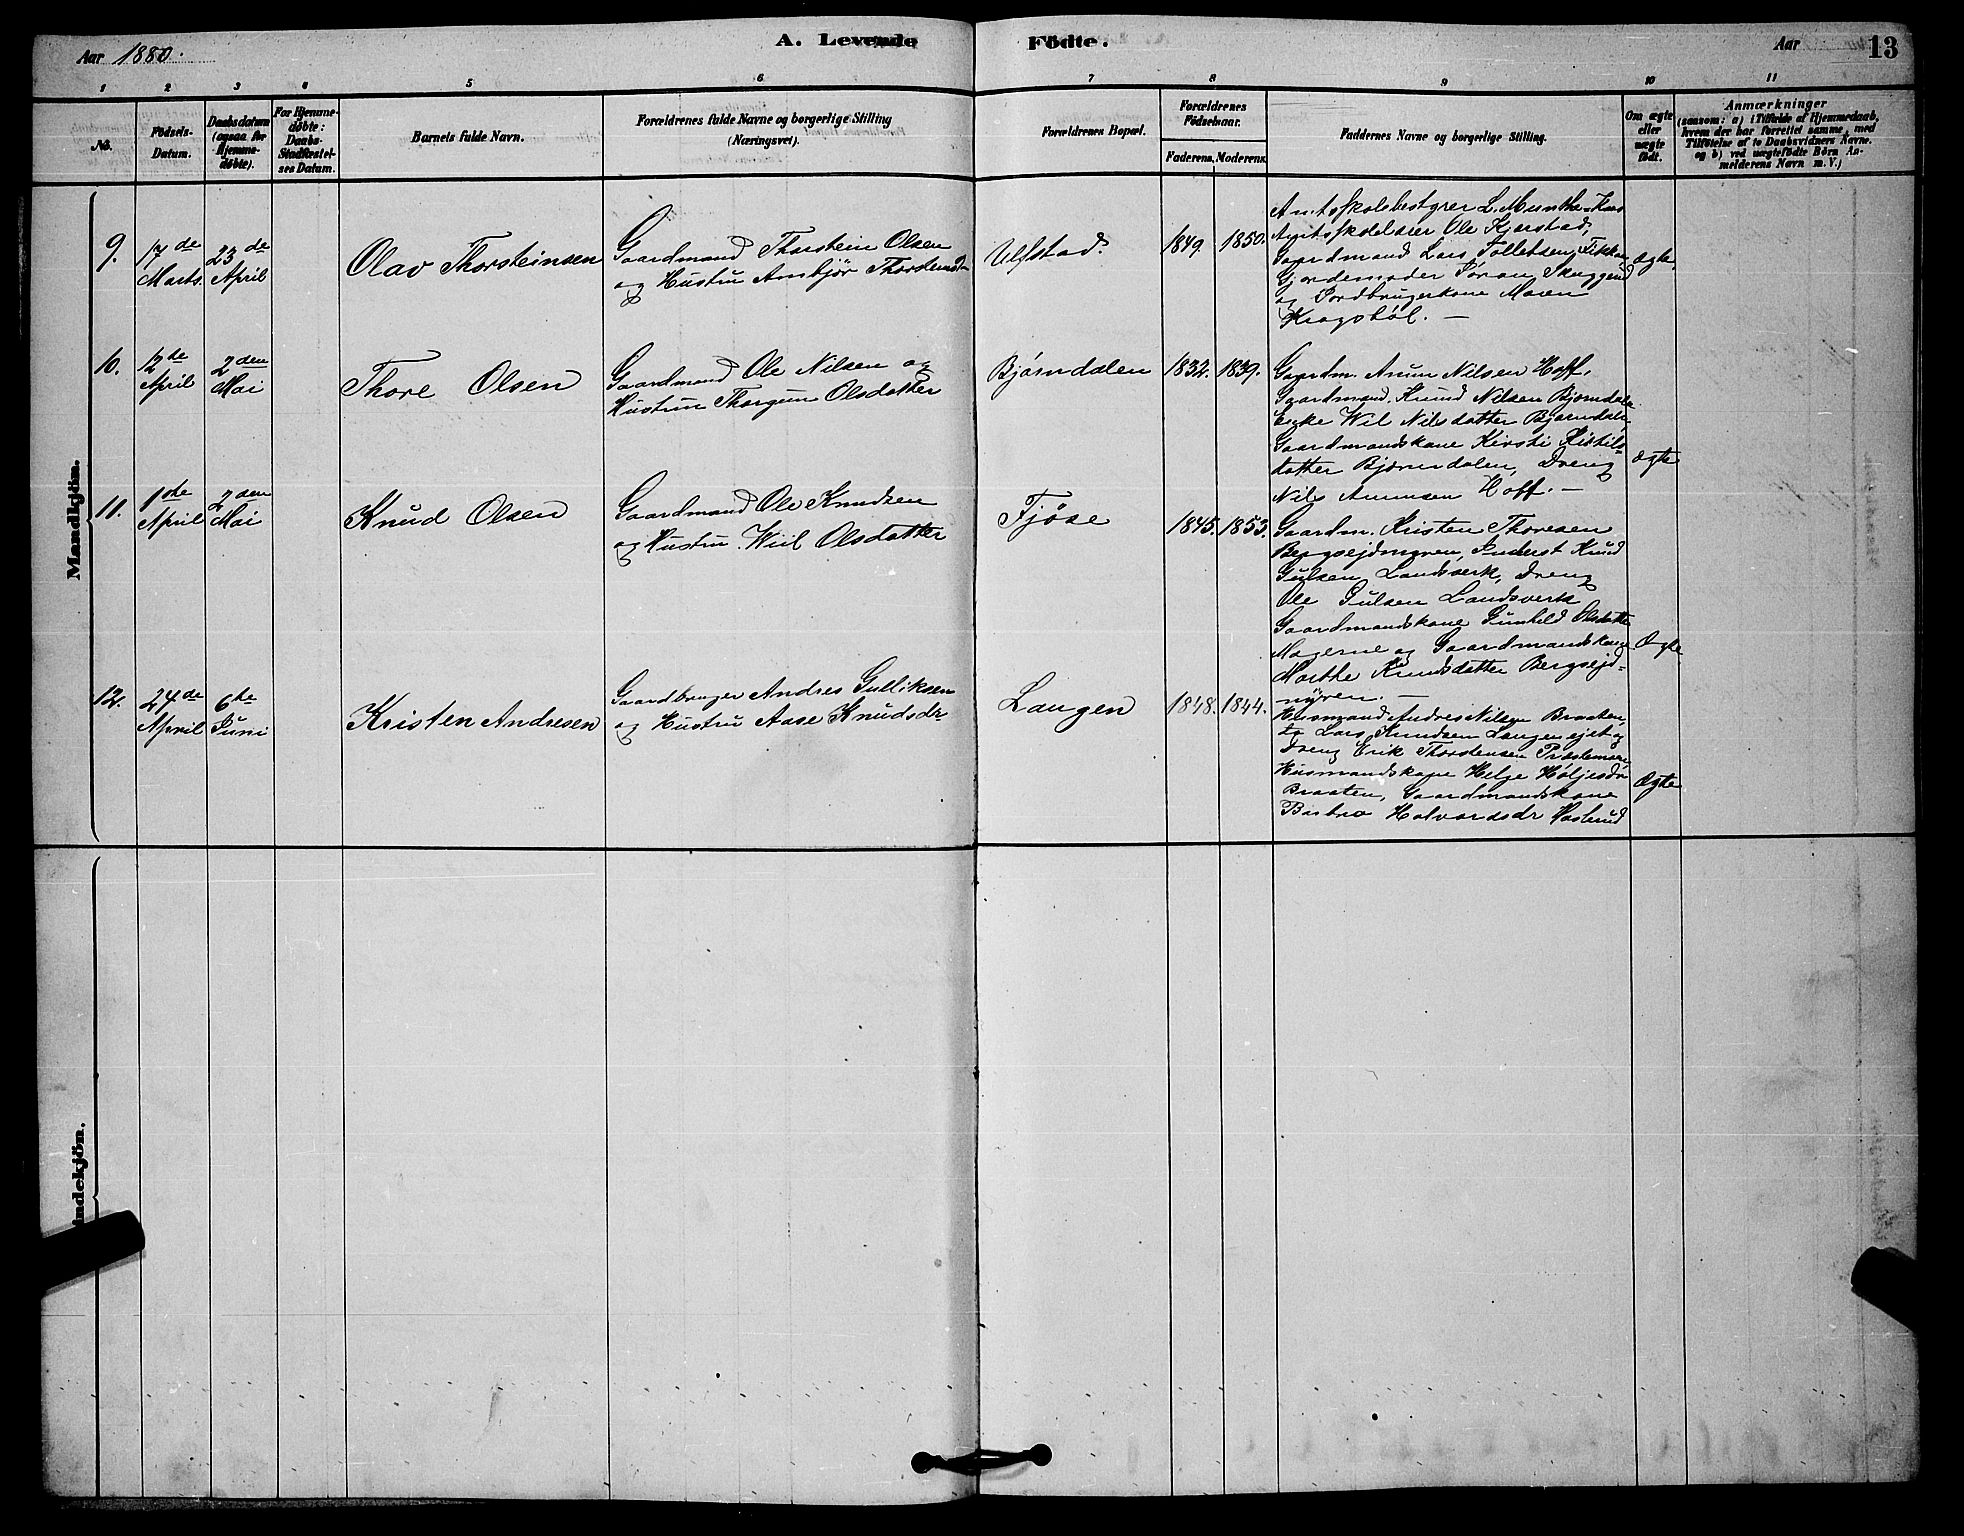 Aar 1880.
A. Levende Födte.
Aar
13
1 2 3 4 5 6 7 8 9 10 11
No.
Födsels-
Datum.
Daabsdatum
(ogsaa for
Hjemme-
döbte).
For Hjemme-
döbte:
Daabs-
Stadfæstel-
ses Datum.
Barnets fulde Navn.
Forældrenes fulde Navne og borgerlige Stilling
(Næringsvei).
Forældrenes Bopæl.
Forældrenes
Födselsaar.
Faderens. Moderens.
Faddernes Navne og borgerlige Stilling.
Om ægte
eller
uægte
födt.
Anmærkninger
(saasom: a) i Tilfælde af Hjemmedaab,
hvem der har forrettet samme, med
Tilföielse af to Daabsvidners Navne.
og b) ved uægtefödte Börn An-
melderens Navn m. V.)
Mandkjön.
9.
17de
Marts.
23de
April
Olav Thorsteinsen
Gaardmand Thorstein Olsen
og Hustru Ambjör
Ulfstad.
1849
1850.
Amtsskolebestyrer L. Munthe-Kaas
Amtsskolelærer Ole Kjerstad,
Gaardmand Lars Tollefsen
Gjordemoder Söran Skuggerud
og Jordbrugerkone Maren
Kragsböl. —
ægte.
10.
12te
April
2den
Mai
Thore Olsen
Gaardmand Ole Nilsen og
Hustru Thorgun Olsdatter
Björndalen
1832.
1839.
Gaardm. Anun Nilsen Hoff,
Gaardmand. Knud Nilsen Bjørndalen
Enke Wil Nilsdatter Bjørndalen,
Gaardmandskone Kirsti Kistils-
datter Bjørndalen, Dreng
Nils Anunsen Hoff. —
ægte
11.
1ste
April
2den
Mai
Knud Olsen
Gaardmand Ole Knudsen
og Hustru Wiil Olsdatter
Fjöse
1845.
1853.
Gaardm. Kristen Thoresen
Knud
Landsverk, Dreng
Ole Landsverk
Gaardmandskone Gunhild Olsdatter
Mogerne og Gaardmandskone
Marthe Knudsdatter Bergsejd-
nyren. —
Ægte
12.
24de
April
6te
Juni
Kristen Andresen
Gaardbruger Andres Gulliksen
og Hustru Aase Knudsdr
Langen
1848.
1844.
Husmand Andres Nilsen Braaten,
Lars Knudsen Langen ejet og
Dreng Erik Thorstensen
Husmandskone Helge Höljesdr
Braaten, Gaardmandskone
Halvordsdr
Ægte
indekjön.